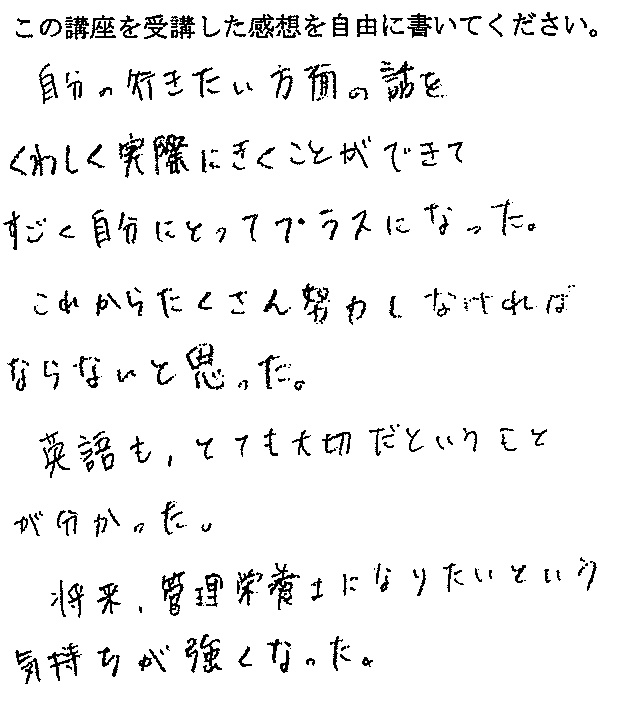 この講座を受講した感想を自由に書いてください。
自分の行きたい方面の話を
くわしく実際にきくことができて
すごく自分にとってプラスになった。
これからたくさん努力しなければ
ならないと思った。
英語も,とても大切だということ
が分かった。
将来、管理栄養士になりたいという
気持ちが強くなった。